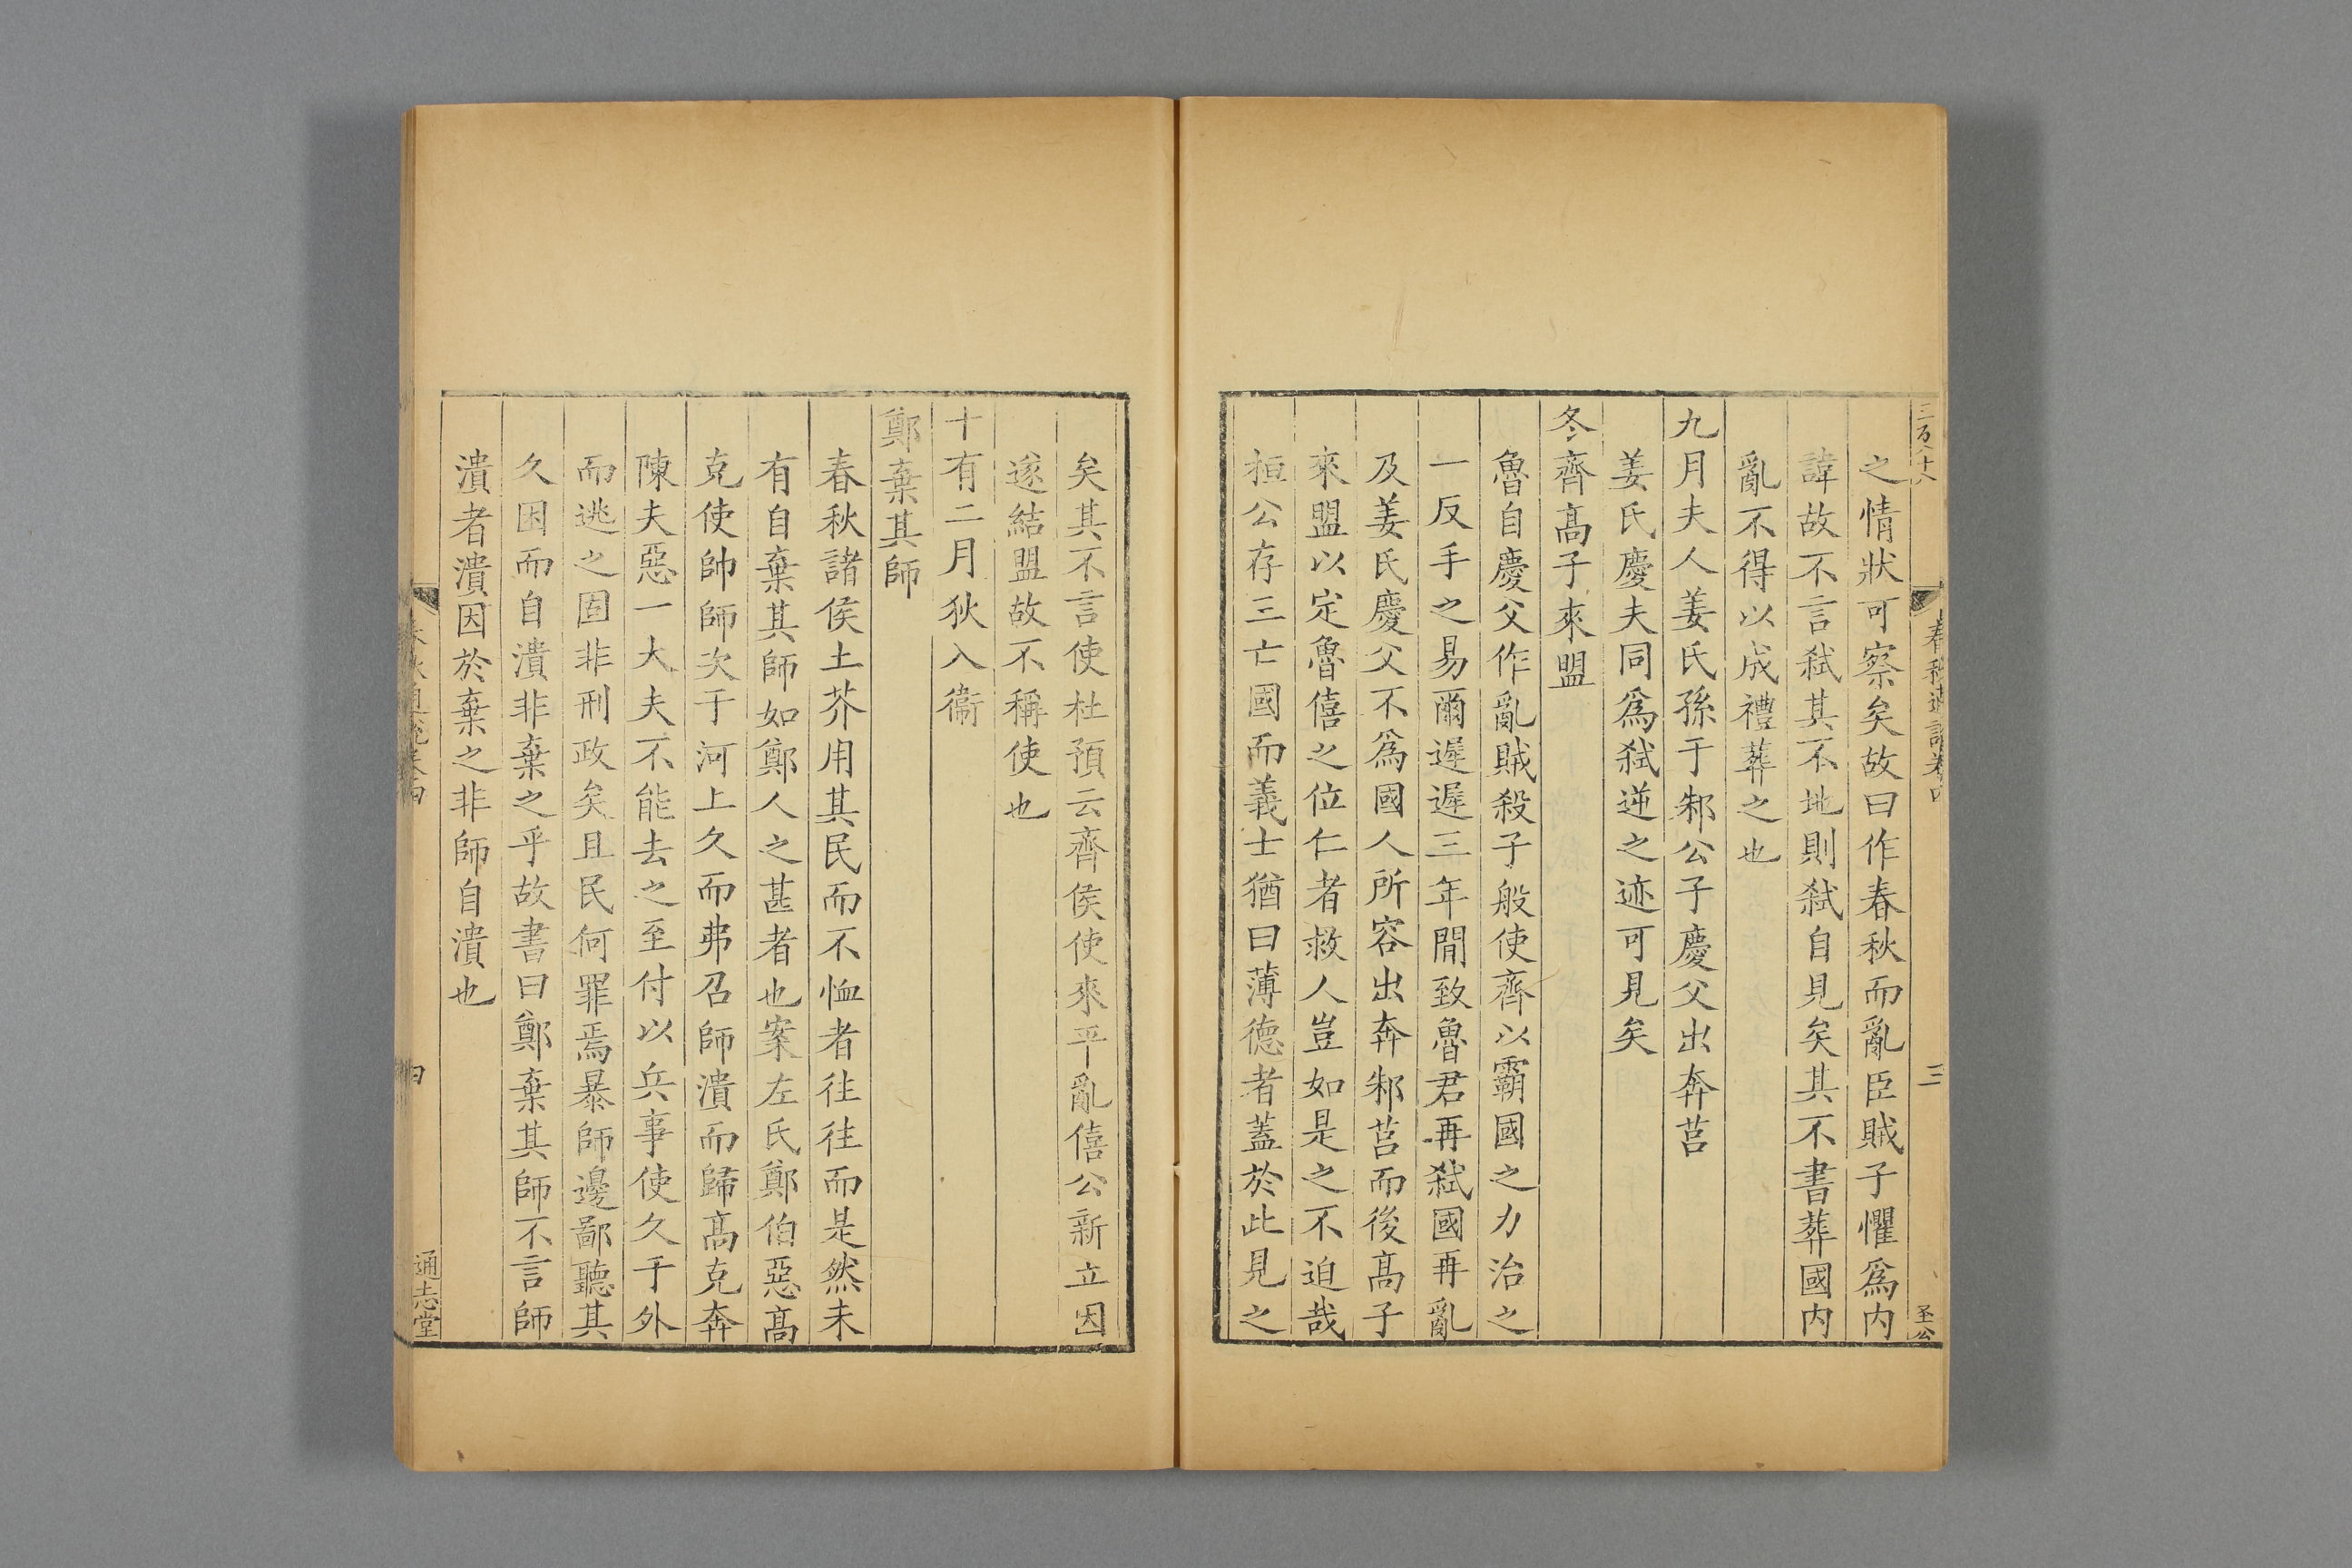 之情狀可察矣故曰作春秋而亂臣賊子懼爲内
諱故不言弑其不地則弑自見矣其不書葬國内
亂不得以成禮葬之也
九月夫人姜氏孫于邾公子慶父出奔莒
姜氏慶夫同爲弑逆之迹可見矣
冬齊高子來盟
魯自慶父作亂賊殺子般使齊以霸國之力治之
一反手之易爾遲遲三年間致魯君再弑國再亂
及姜氏慶父不爲國人所容出奔邾莒而後高子
來盟以定魯僖之位仁者救人豈如是之不迫哉
桓公存三亡國而義士猶曰薄德者蓋於此見之
矣其不言使杜預云齊侯使來平亂僖公新立因
遂結盟故不稱使也
十有二月狄入衞
鄭棄其師
春秋諸侯土芥用其民而不恤者往往而是然未
有自棄其師如鄭人之甚者也案左氏鄭伯惡高
克使帥師次于河上久而弗召師潰而歸高克奔
陳夫惡一大夫不能去之至付以兵事使久于外
而逃之固非刑政矣且民何罪焉暴師邊鄙聽其
久困而自潰非棄之乎故書曰鄭棄其師不言師
潰者潰因於棄之非師自潰也
通志堂